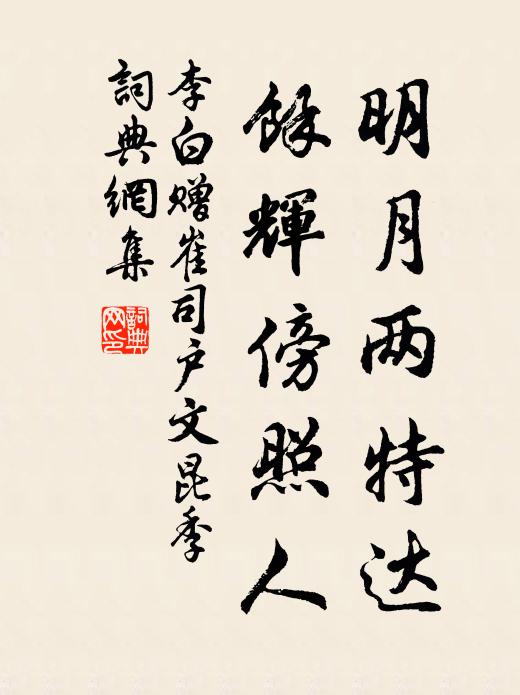 明月两特达
餘輝傍照人
李白赠崔司户文昆季
詞典網集
詞典网印